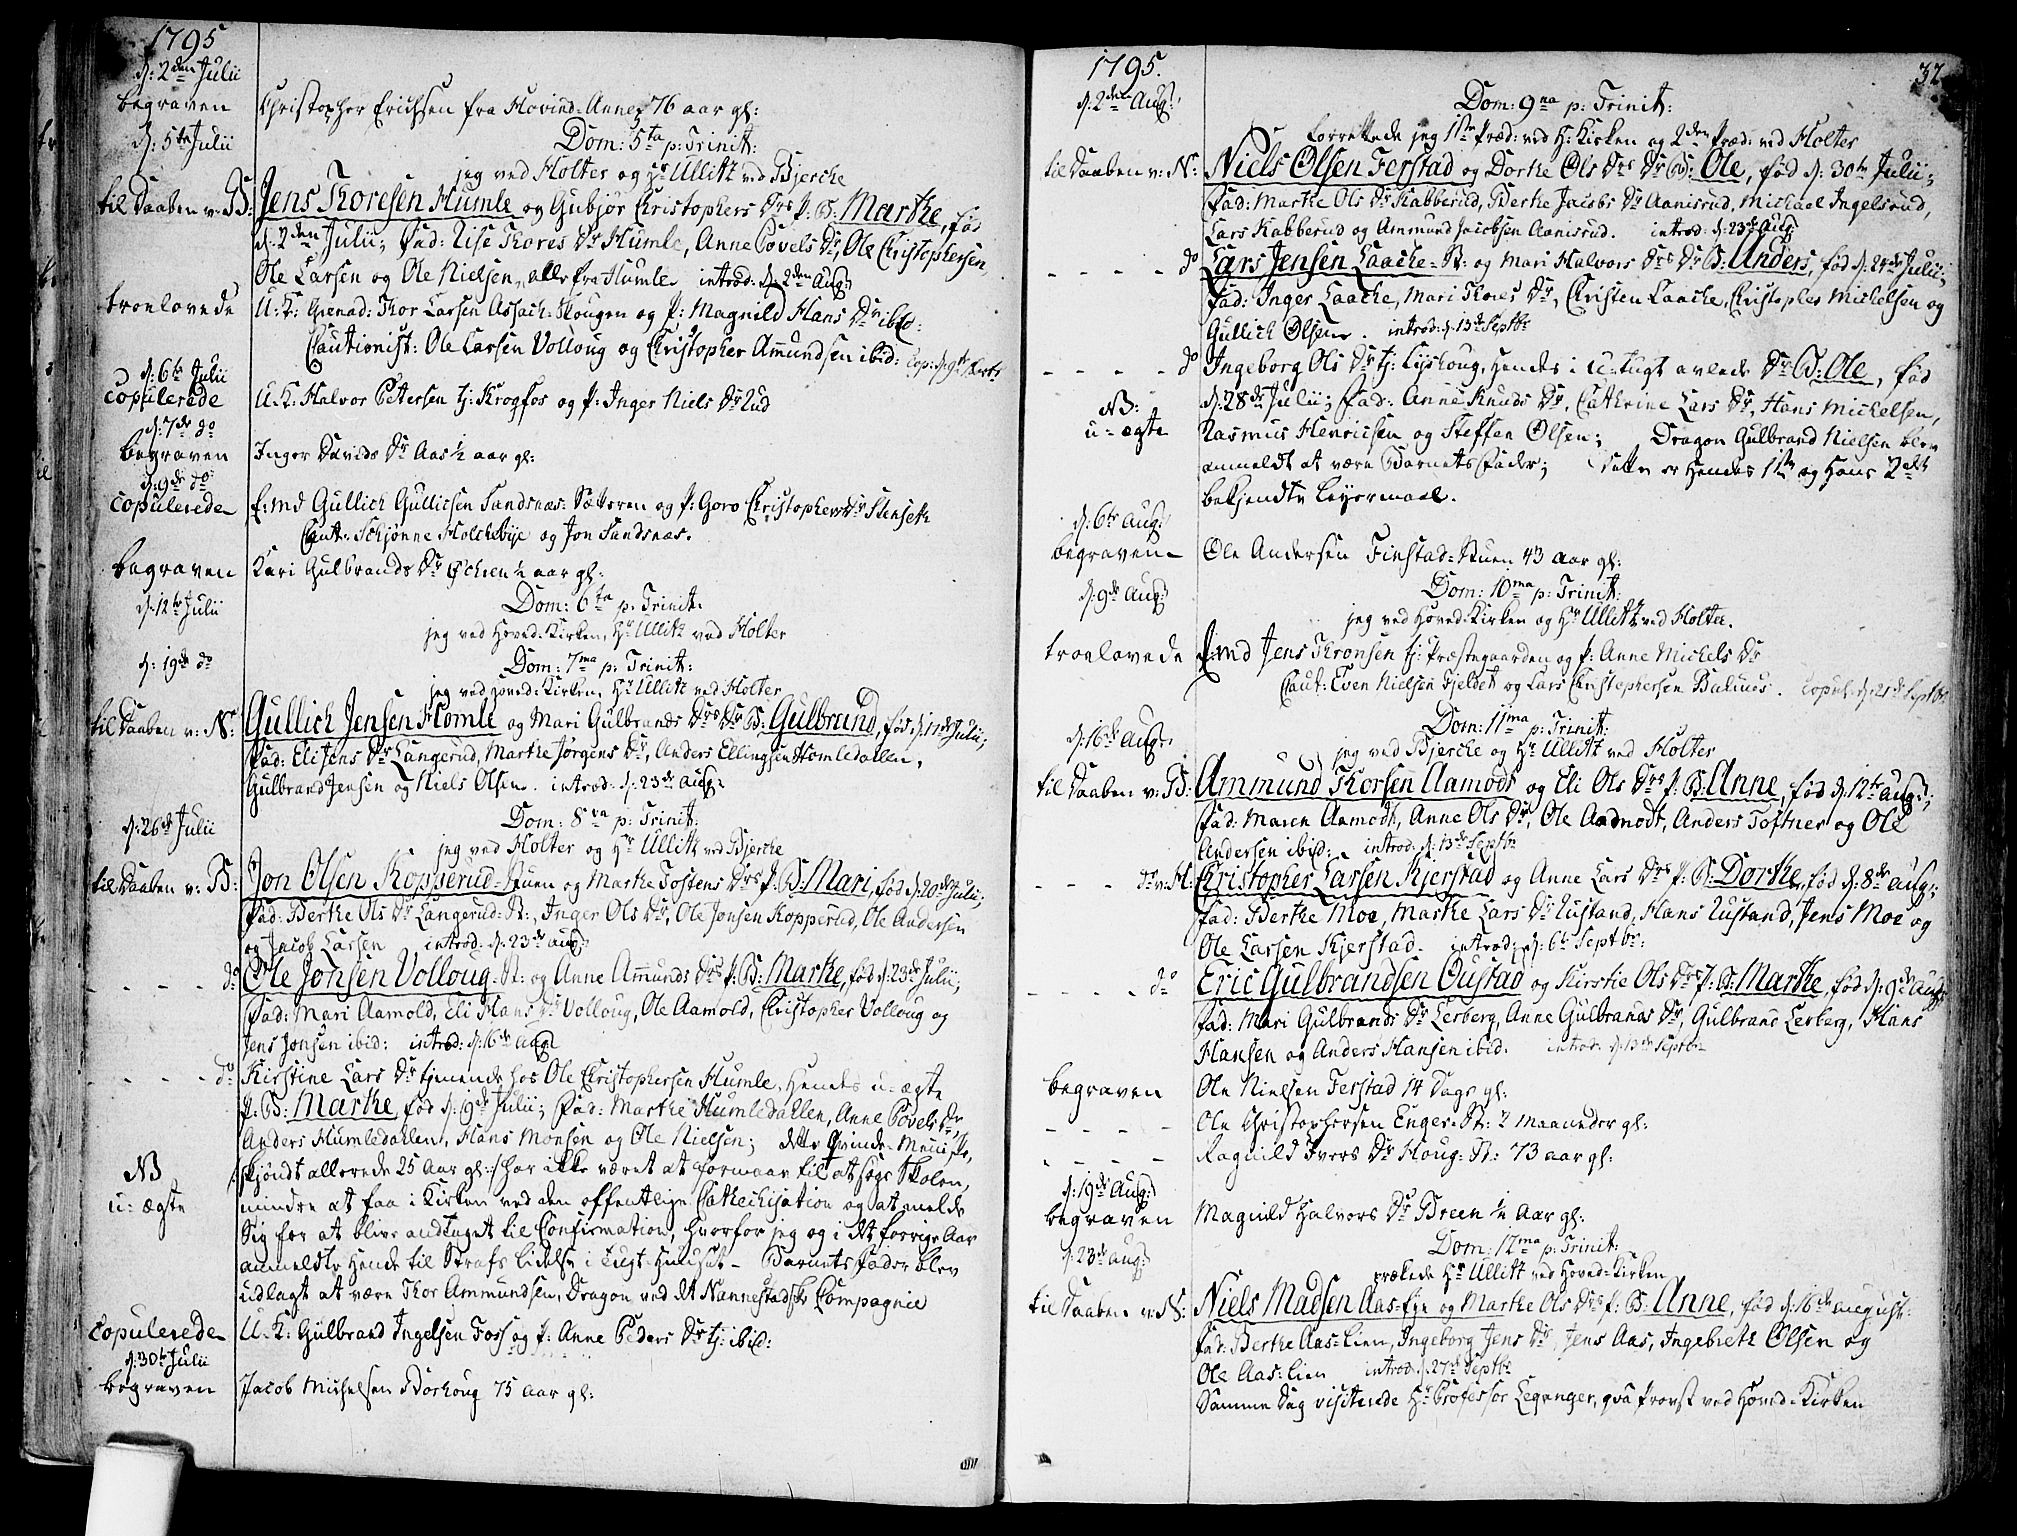 1795
d: 2den Julii
begraven Christopher Erichsen fra Hovind-Annex 76 aar gl:
d: 5te Julii Dom: 5ta p: Trinit:
jeg ved Holter og Hr Ullitz ved Bjerche
til Daaben v: B: Jens Thoresen Humle og Gubjør Christophers Drs p: B: Marthe, fød
d: 2den Julii; fad: Lise Thores Dr Humle, Anne Povels Dr, Ole Christophersen,
Ole Larsen og Ole Nielsen, alle fra Humle introd: d: 2den Aug:
troelovede U: K: Grenad: Thor Larsen Assach-Skougen og P: Magnild Hans Dr ibid:
Cautionist: Ole Larsen Volloug og Christopher Amundsen ibid: cop: d: 9de
d: 6te Julii
copulerede U. K. Halvor Petersen tj: Krogfos og P: Inger Niels Dr Rud
d: 7de do
begraven Inger Davids Dr Aas ½ aar gl:
d: 9de do
copulerede E: md Gullich Gullicsen Sandsnæs-Sætteren og P: Goro Christophers Dr Stenseth
Caut: Schjønne Holchebye og Jon Sandsnæs.
begraven Kari Gulbrands Dr Øchren ½ aar gl:
d: 12te Julii Dom: 6ta p: Trinit:
jeg ved Hoved-Kirken, Hr Ullitz ved Holter
d: 19de do Dom: 7ma p: Trinit:
jeg ved Hoved-Kirken, Hr Ullitz ved Holter
til Daaben v: N: Gullich Jensen Homle og Mari Gulbrands Drs Dr B: Gulbrand, fød d: 17de Julii;
fad: Eli Jens Dr Langerud, Marthe Jørgens Dr, Anders Ellingsen Homledallen,
Gulbrand Jensen og Niels Olsen. introd: d: 23de Aug:
d: 26de Julii Dom: 8va p: Trinit:
jeg ved Holter og Hr Ullitz ved Bjerche
til Daaben v: B: Jon Olsen Kopperud-Stuen og Marthe Tostens Drs P: B: Mari, fød d: 20de Julii;
fad: Berthe Ols Dr Langerud-St:, Inger Ols Dr, Ole Jonsen Kopperud, Ole Andersen
og Jacob Larsen introd: d: 23de Aug:
- - - - do Ole Jonsen Volloug-St: og Anne Amunds Drs P: B: Marthe, fød d: 23de Julii;
fad: Mari Aamold, Eli Hans Dr Volloug, Ole Aamold, Christopher Volloug og
Jens Jonsen ibid: introd: d: 16de Aug
- - - - do Kirstine Lars Dr tjenende hos Ole Christophersen Humle, Hendes u-ægte
P: B: Marthe, fød d: 19de Julii; fad: Marthe Humledallen, Anne Povels Dr,
Anders Humledallen, Hans Monsen og Ole Nielsen; dette Qvinde-Menniske,
NB skjøndt allerede 25 aar gl: har ikke været at formaae til at søge Skolen,
u-ægte mindre at faa i Kirken ved den offentlige Cathechisation og at melde
Sig for at blive andtaget til Confirmation, hvorfor jeg og i det forrige Aar
anmeldte Hende til Strafs Lidelse i Tugt-Huuset - Barnets Fader blev
udlagt at være Thor Ammundsen, Dragon ved det Nannestadske Compagnie
copulerede U. K: Gulbrand Ingelsen Foss og P: Anne Peders Dr tj: ibid:
d: 30te Julii
begraven Jacob Michelsen Borhoug 75 aar gl:
1795. 32
d: 2den Aug: Dom: 9na p: Trinit:
forrettede jeg 11te Præd: ved H: Kirken og 2den Præd: ved Holter
til Daaben v: N: Niels Olsen Ferstad og Dorthe Ols Drs Dr B: Ole, fød d: 30te Julii;
fad: Marthe Ols Dr Kabberud, Berthe Jacobs Dr Aanisrud, Michael Ingelsrud,
Lars Kabberud og Ammund Jacobsen Aanisrud. introd: d: 23de Aug:
- - - - do Lars Jensen Laache-St: og Mari Halvors Drs Dr B: Anders, fød d: 24de Julii;
fad: Inger Laache, Mari Thores Dr, Christen Laache, Christopher Michelsen og
Gullich Olsen. introd: d: 13de Septbr
- - - - do Ingeborg Ols Dr tj: Lyshoug, Hendes i U-Tugt avlede Dr B: Ole, fød
NB: d: 28de Julii; fad: Anne Knuds Dr, Cathrine Lars Dr, Hans Michelsen,
u-ægte Rasmus Henricsen og Steffen Olsen; Dragon Gulbrand Nielsen blev
anmeldt at være Barnets Fader; dette er Hendes 1te og Hans 2det
bekjendte Leyermaal.
d: 6te Aug:
begraven Ole Andersen Finstad-Stuen 43 aar gl:
d: 9de Aug: Dom: 10ma p: Trinit:
jeg ved Hoved-Kirken og Hr Ullitz ved Holter.
troelovede E: md Jens Thronsen tj: Præstegaarden og P: Anne Michels Dr
Caut: Even Nielsen Fjeldet og Lars Christophersen Balnes. copul: d: 21de Septbr
d: 16de Aug: Dom: 11ma p: Trinit:
jeg ved Bjerche og Hr Ullitz ved Holter
til Daaben v: B: Ammund Thorsen Aamodt og Eli Ols Drs P: B: Anne, fød d: 12te Aug:;
fad: Maren Aamodt, Anne Ols Dr, Ole Aadnødt, Anders Toftner og Ole
Andersen ibid: introd: d: 13de Septbr
- - - do v: H: Christopher Larsen Kjerstad og Anne Lars Drs P: B: Dorthe, fød d: 8de Aug:;
fad: Berthe Moe, Marthe Lars Dr Rustand, Hans Rustand, Jens Moe og
Ole Larsen Kjerstad. introd: d: 6te Septbr:
- - - - do Eric Gulbrandsen Oustad og Kirstie Ols Drs P: B: Marthe, fød d: 9de Aug:
fad: Mari Gulbrands Dr Lerberg, Anne Gulbrands Dr, Gulbrand Lerberg, Hans
Hansen og Anders Hansen ibid. introd: d: 13de Septbr
begraven Ole Nielsen Ferstad 14 Dage gl:
- - - - Ole Christophersen Enger-St: 2 Maaneder gl:
- - - - Ragnild Ivers Dr Houg-St: 73 aar gl:
d: 19de Aug:
begraven Magnild Halvors Dr Breen ½ Aar gl:
d: 23de Aug: Dom: 12ma p: Trinit:
prækede Hr Ullitz ved Hoved-Kirken
til Daaben v: N: Niels Madsen Aas-Eje og Marthe Ols Drs P: B: Anne, fød d: 16de August:
fad: Berthe Aas-Lien, Ingeborg Jens Dr, Jens Aas, Ingebreth Olsen og
Ole Aas-Lien introd: d: 27de Septbr
Samme Dag visiterede Hr Professor Leganger, qva Provst ved Hoved-Kirken